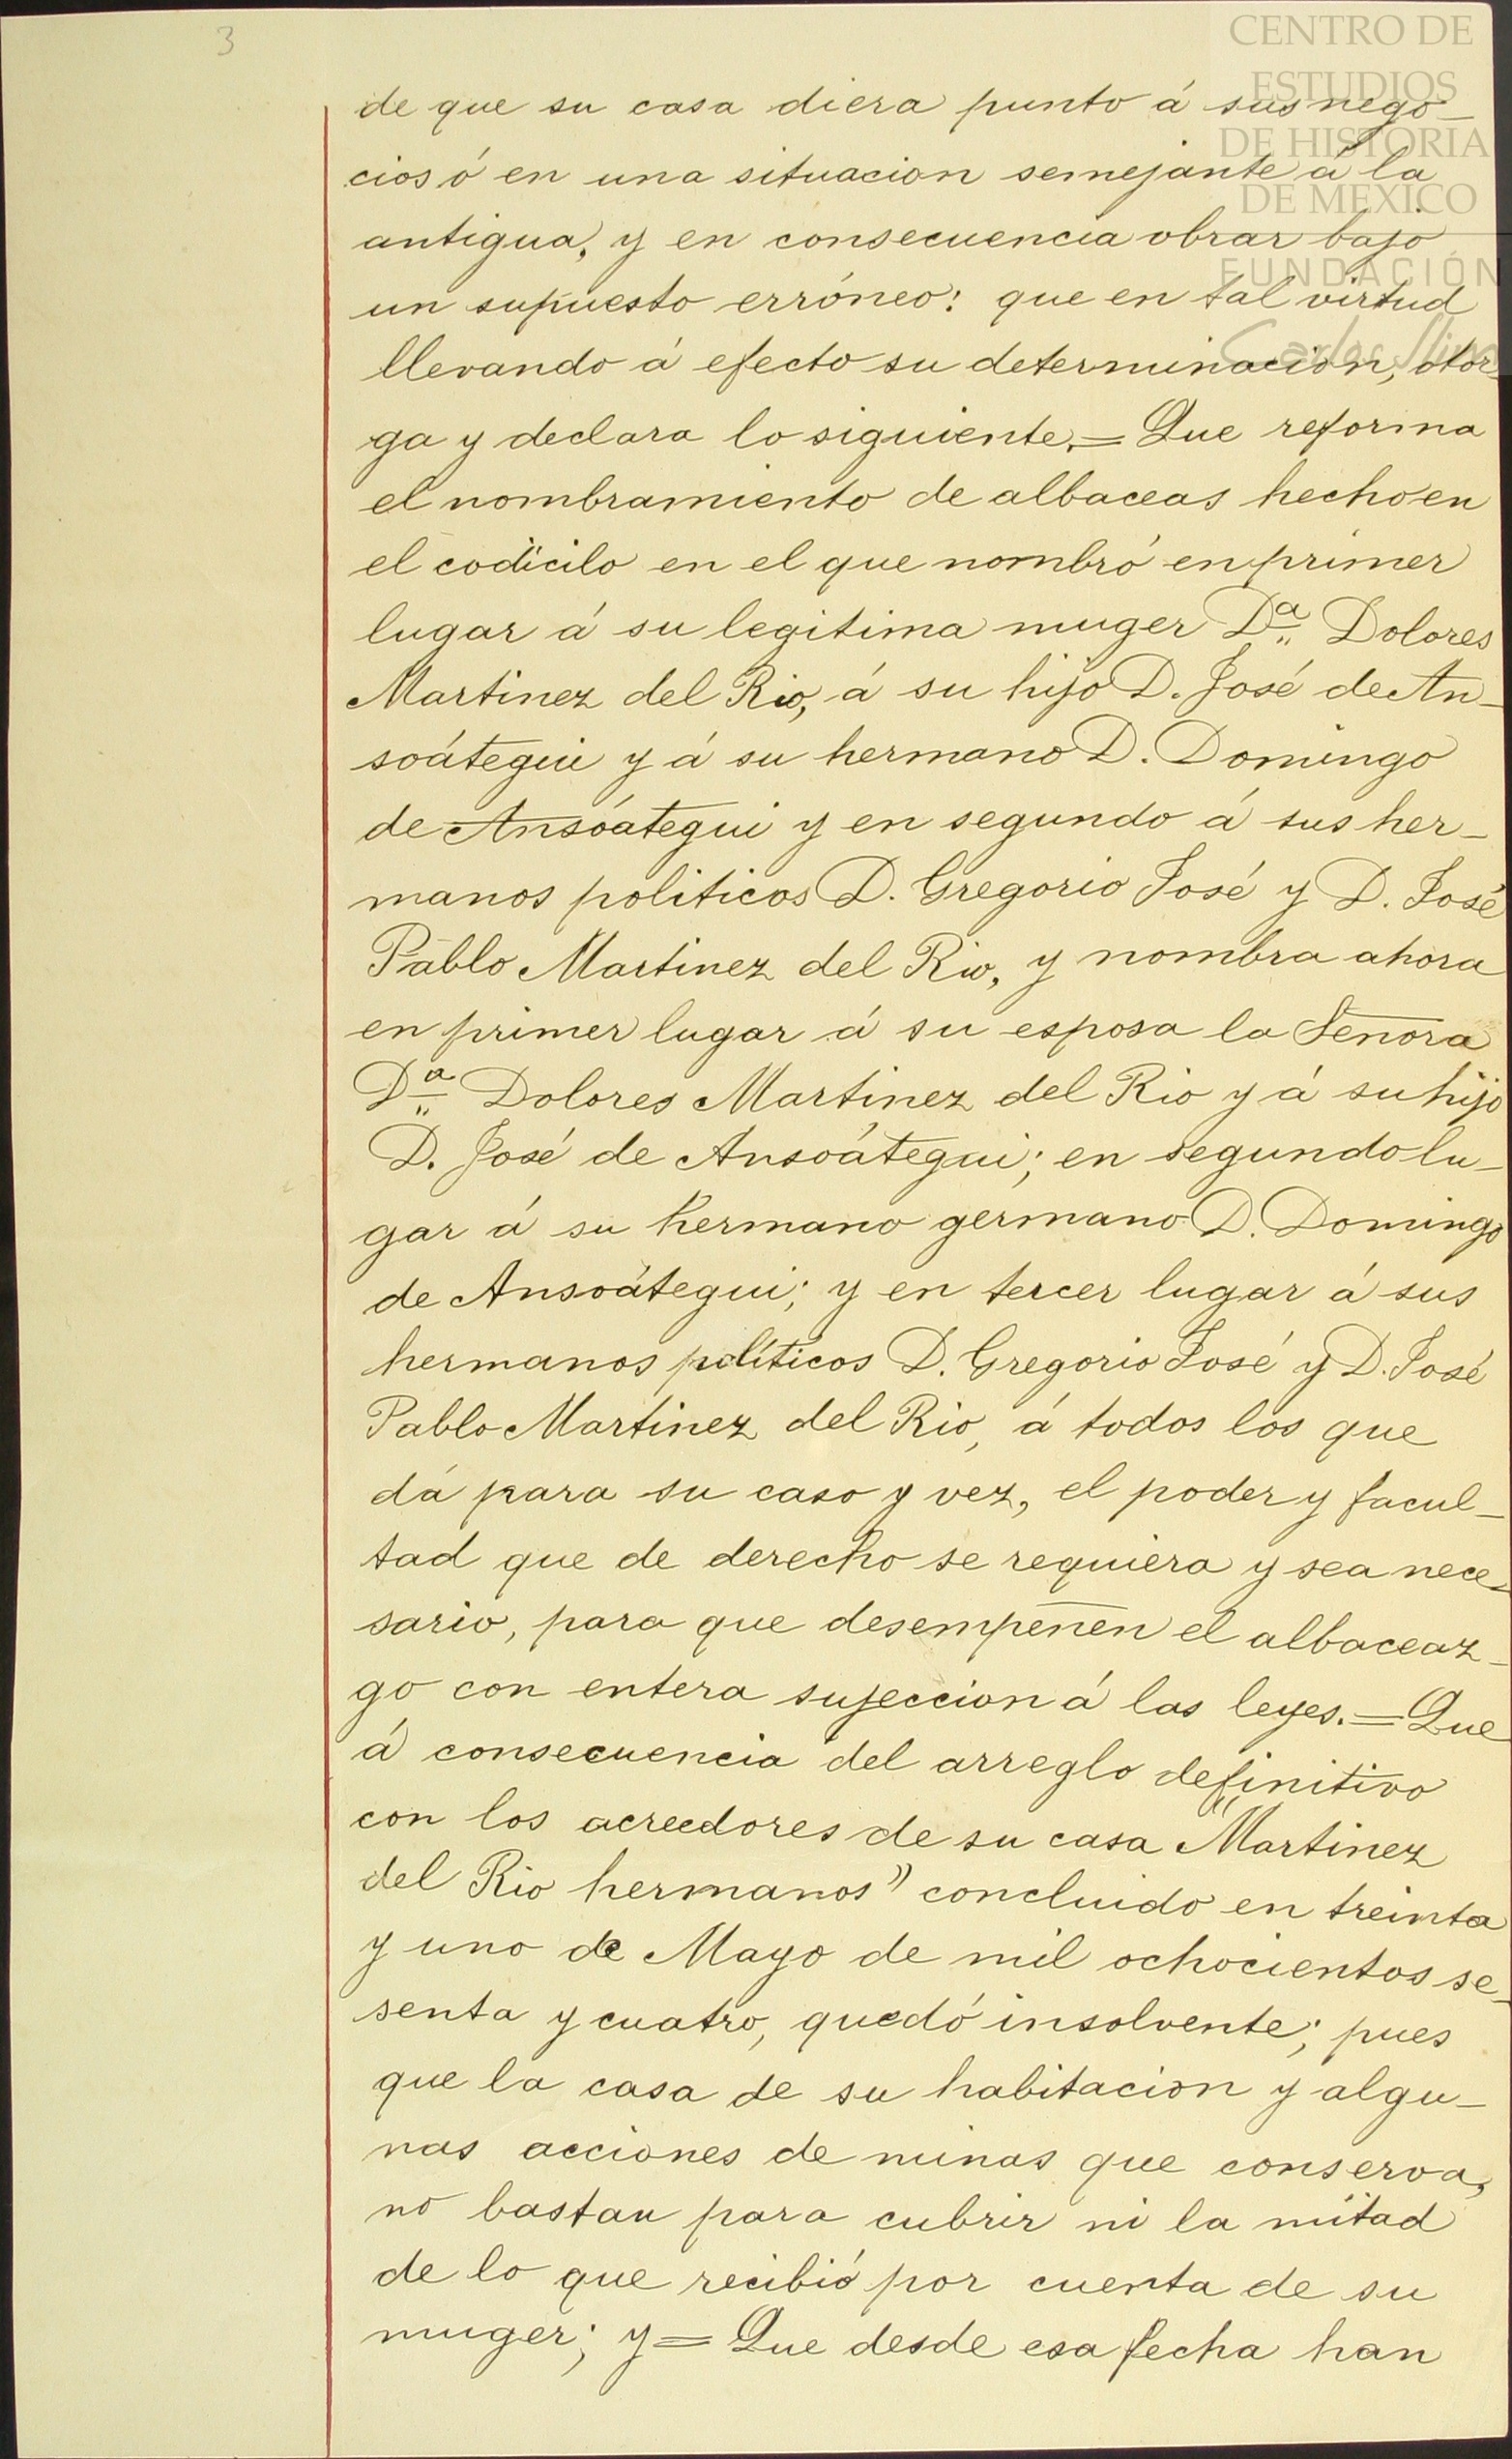 3
CENTRO DE
ESTUDIOS
DE HISTORIA
DE MEXICO
FUNDACIÓN
Carlos Slim
de que su casa diera punto á sus nego-
cios ó en una situacion semejante á la
antigua, y en consecuencia obrar bajo
un supuesto erróneo: que en tal virtud
llevando á efecto su determinacion, otor-
ga y declara lo siguiente.= Que reforma
el nombramiento de albaceas hecho en
el codicilo en el que nombró en primer
lugar á su legitima muger Dª Dolores
Martinez del Rio, á su hijo D. José de An-
soátegui y á su hermano D. Domingo
de Ansoátegui y en segundo á sus her-
manos politicos D. Gregorio José y D. José
Pablo Martinez del Rio, y nombra ahora
en primer lugar á su esposa la Señora
Dª Dolores Martinez del Rio y á su hijo
D. José de Ansoátegui; en segundo lu-
gar á su hermano germano D. Domingo
de Ansoátegui; y en tercer lugar á sus
hermanos políticos D. Gregorio José y D. José
Pablo Martinez del Rio, á todos los que
dá para su caso y vez, el poder y facul-
tad que de derecho se requiera y sea nece-
sario, para que desempeñen el albaceaz-
go con entera sujeccion á las leyes.= Que
á consecuencia del arreglo definitivo
con los acreedores de su casa "Martinez
del Rio hermanos" concluido en treinta
y uno de Mayo de mil ochocientos se-
senta y cuatro, quedó insolvente; pues
que la casa de su habitacion y algu-
nas acciones de minas que conserva,
no bastan para cubrir ni la mitad
de lo que recibió por cuenta de su
muger; y= Que desde esa fecha han